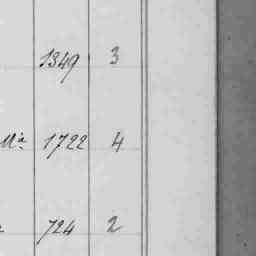 1349 3
Mª 1722 4
724 2